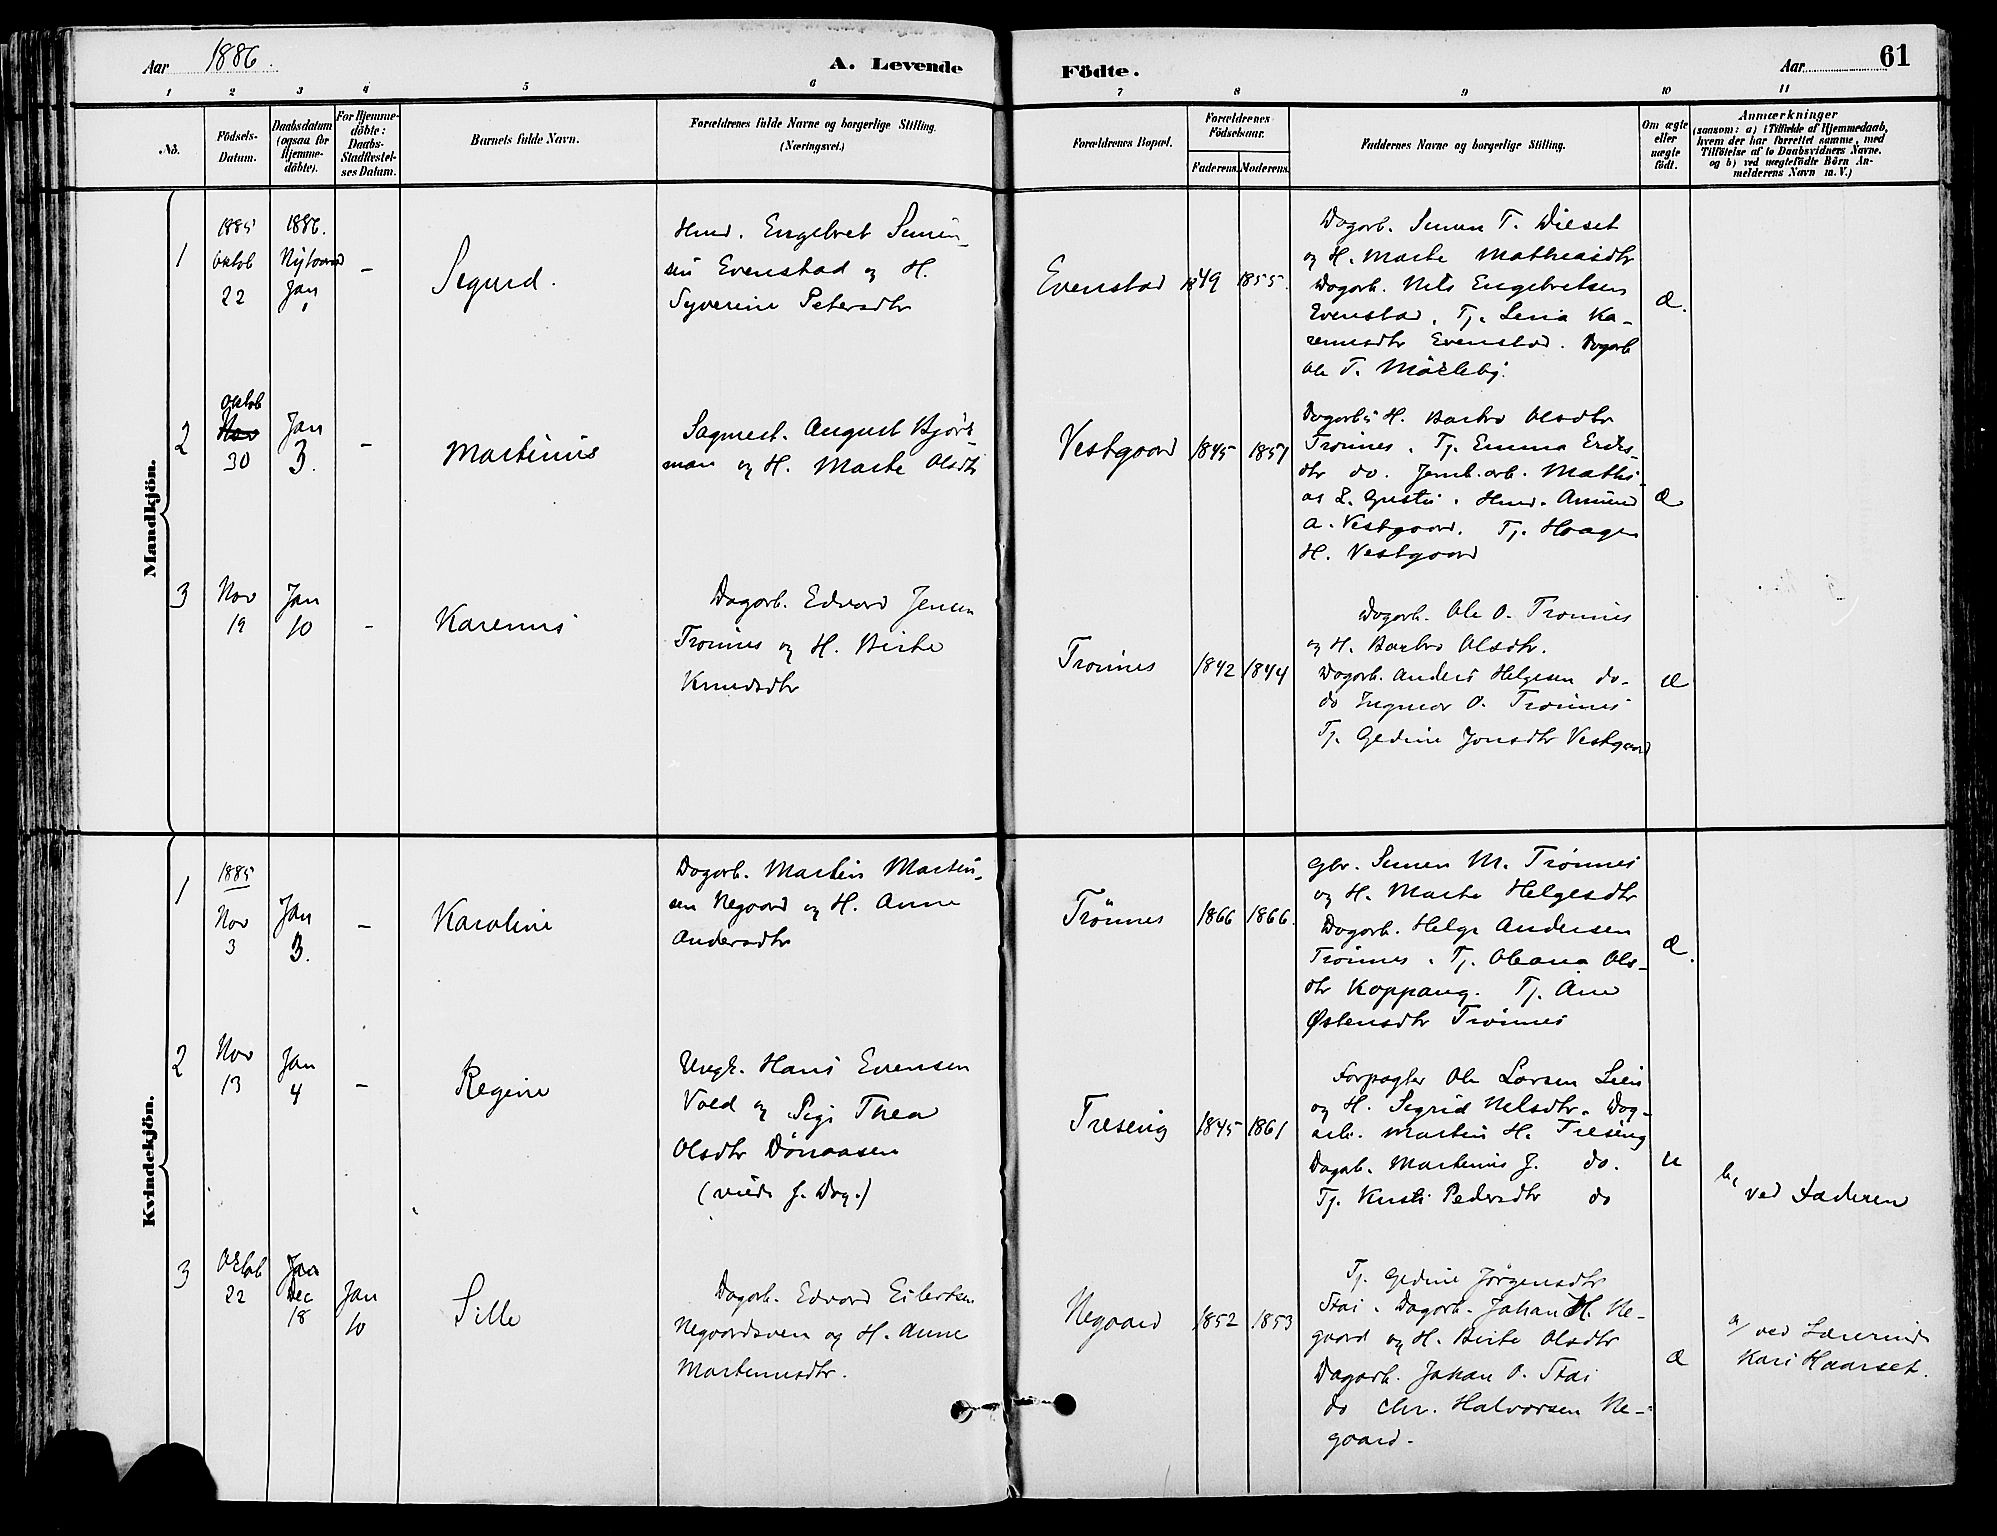 Aar 1886.
A. Levende Födte.
Aar 61
1 2 3 4 5 6 7 8 9 10 11
No.
Födsels-Datum.
Daabsdatum (ogsaa for Hjemme-döbte).
For Hjemme-döbte: Daabs-Stadfæstel-ses Datum.
Barnets fulde Navn.
Forældrenes fulde Navne og borgerlige Stilling.
(Næringsvei.)
Forældrenes Bopæl.
Forældrenes Födselsaar.
Faderens. Moderens.
Faddernes Navne og borgerlige Stilling.
Om ægte eller uægte födt.
Anmærkninger
(saasom: a) i Tilfælde af Hjemmedaab,
hvem der har forrettet samme, med
Tilföielse af to Daabsvidners Navne.
og b) ved uægtefödte Börn An-
melderens Navn m. V.)
Mandkjön.
1
1885
oktob
22
1886.
Nytaarsd
Jan
1
-
Segurd.
Hmd. Engebret Simen-
sen Evenstad og H.
Syverine Petersdtr
Evenstad
1849
1855.
Dagarb. Simen T. Dieset
og H. Marte Matheasdtr
Dagarb. Nils Engebretsen
Evenstad. Tj. Lena Ka-
renusdtr Evenstad. Dagarb
Ole T. Mörkeby.
Æ.
2
oktob
Nov
30
Jan
3.
-
Martinus
Sagmest. August Bjørk-
man og H. Marte Olsdtr
Vestgaard
1845
1857
Dagarbs H. Barbro Olsdtr
Trønnes. Tj. Emma Eriks-
dtr do. Jernb.arb. Mathi-
as L. Gustu. Hmd. Amund
A. Vestgaard. Tj. Haagen
H. Vestgaard
Æ
3
Nov
19
Jan
10
-
Karenus
Dagarb. Edvard Jensen
Trønnes og H. Birte
Knudsdtr
Trønnes
1842
1844
Dagarb. Ole O. Trønnes
og H. Barbro Olsdtr.
Dagarb. Anders Helgesen do.
do Ingmar O. Trønnes
Tj. Gedine Jonsdtr Vestgaard
Æ
Kvindekjön.
1
1885
Nov
3
Jan
3.
-
Karoline
Dagarb. Martin Martin-
sen Negaard og H. Anne
Andersdtr
Trönnes
1866
1866.
Gbr. Simen M. Trønnes
og H. Marte Helgesdtr
Dagarb. Helge Andersen
Trønnes. Tj. Oleana Ols-
dtr Koppang. Tj. Ane
Østensdtr Trønnes
Æ.
2
Nov
13
Jan
4
-
Regine
Ungk. Hans Evensen
Vold og Pige Thea
Olsdtr Dönaasen
(viede s. Dag.)
Treseng
1845
1861
Forpagter Ole Larsen Lien
og H. Segrid Nelsdtr. Dag-
arb. Martin H. Treseng
Dagarb. Martinus J. do.
Tj. Kusti Pedersdtr do
U
b, ved Faderen
3
Oktob
22
Jan
Dec
18
Jan
10
Sille
Dagarb. Edvard Eilertsen
Negaardsveen og H. Anne
Martinusdtr.
Negaard
1852
1853
Tj. Gedine Jørgensdtr
Stai. Dagarb. Johan H. Ne-
gaard og H. Birte Olsdtr
Dagarb. Johan O. Stai
do Chr. Halvorsen Ne-
gaard.
Æ
a/ ved Lærerinde
Kari Haarset.